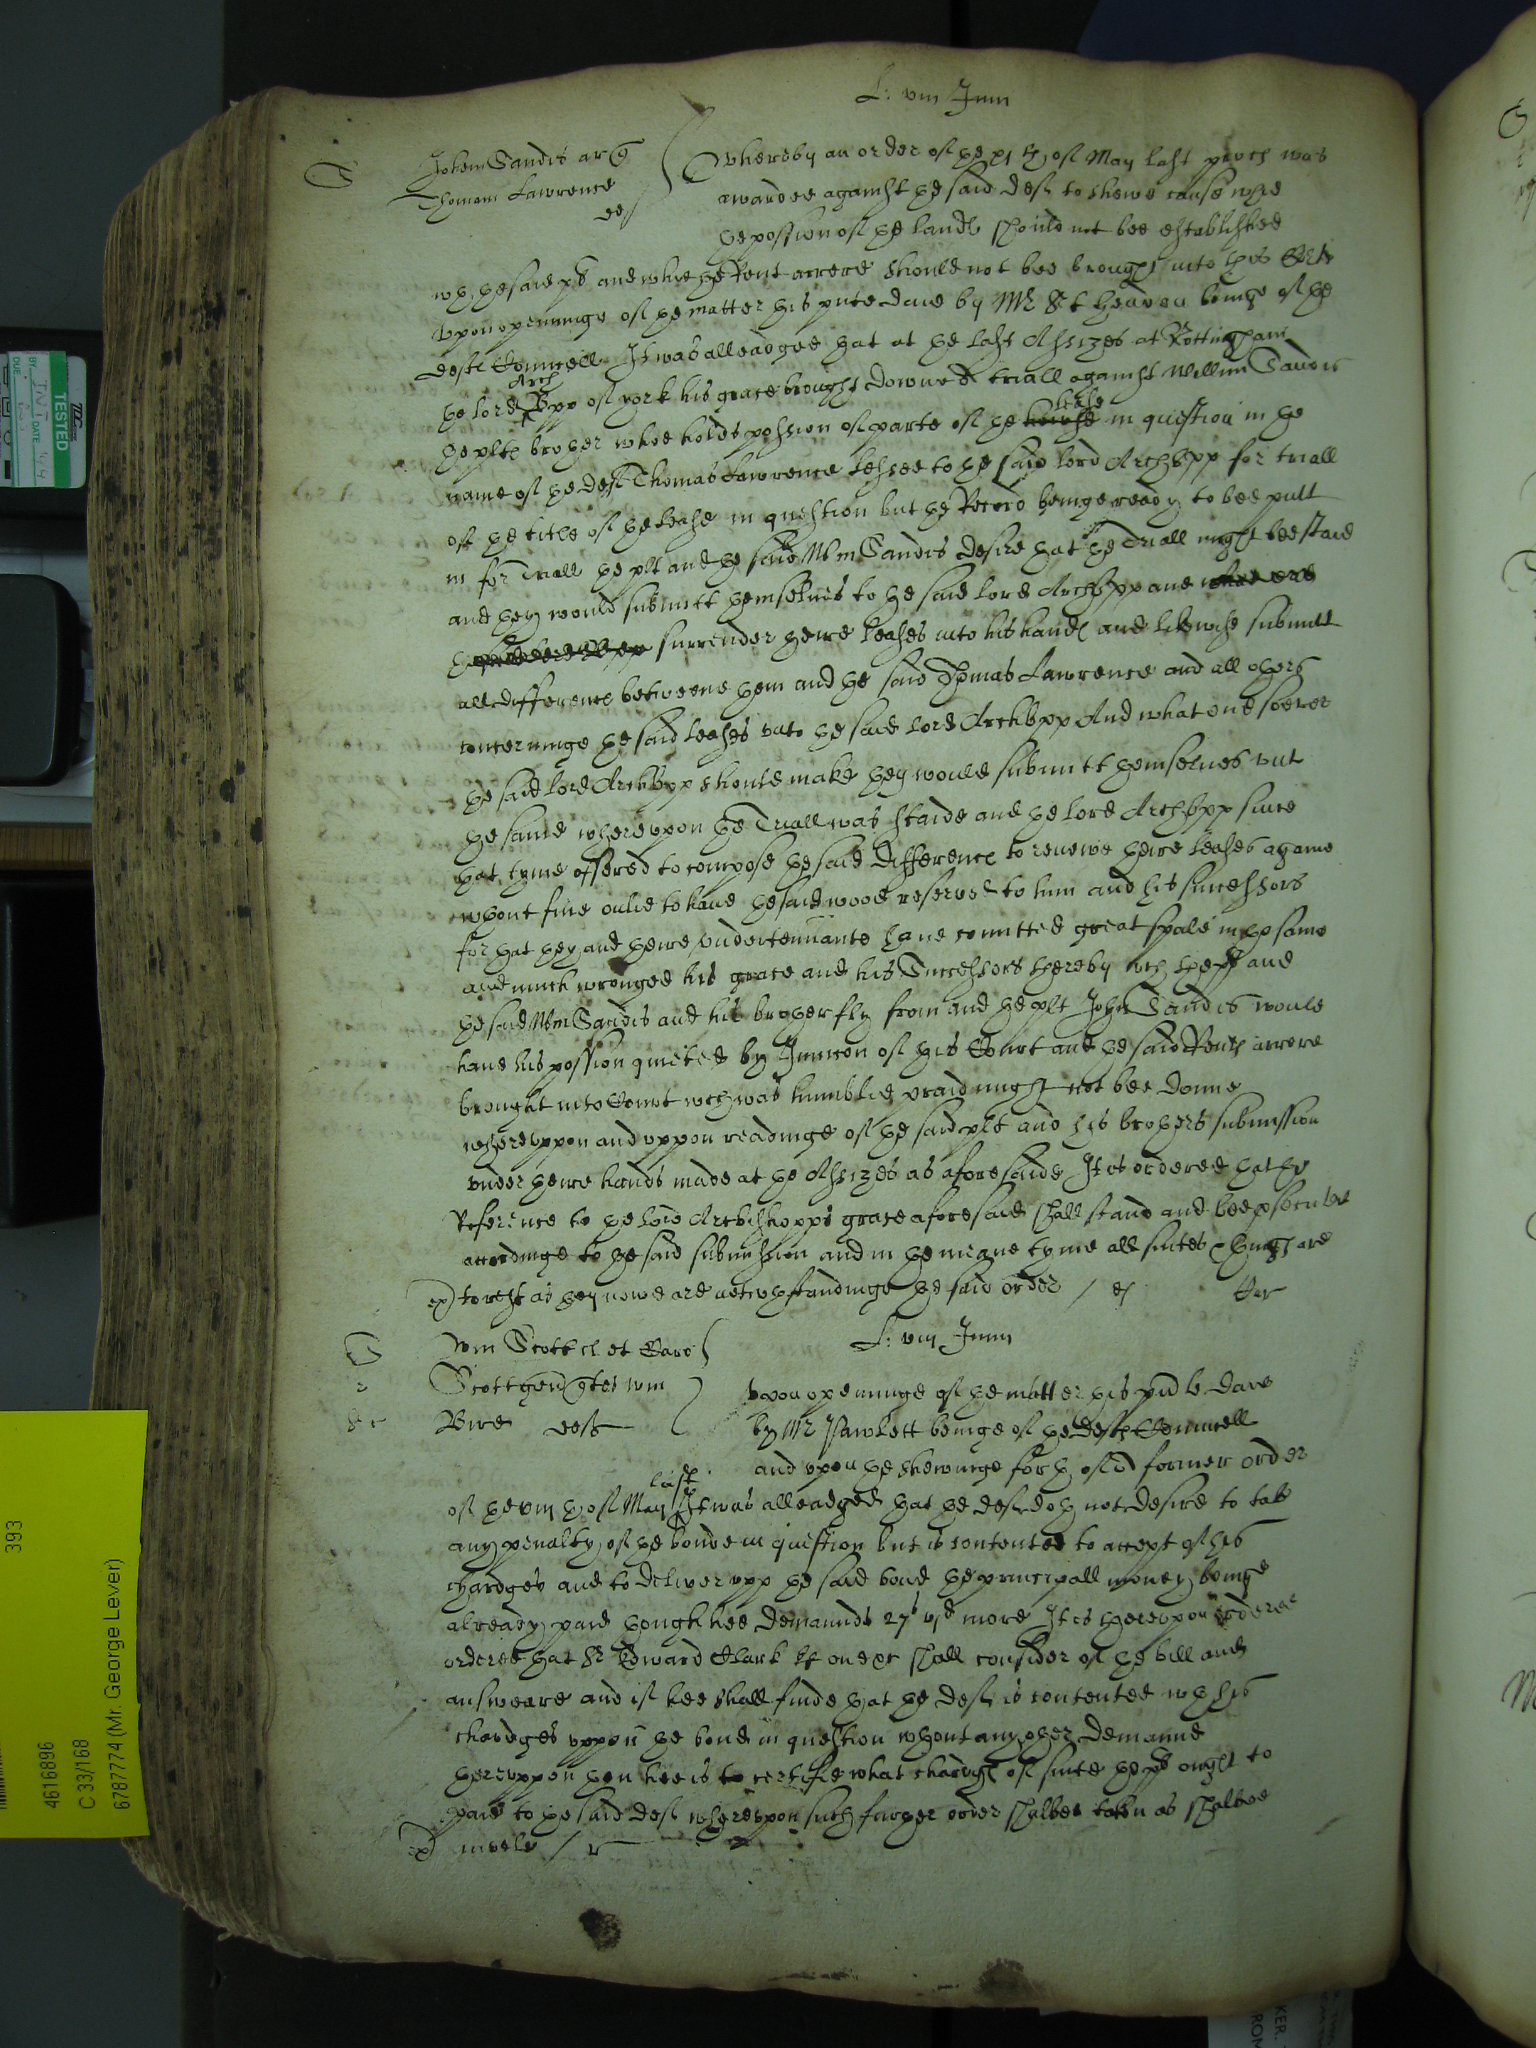 L: viii Junii
S
Johem Sandis ar q
Thomam Lawrence
def
Whereby an order of the xith of May last proces was
awarded against the said def to shewe cause whie
the possion of the landℓ should not bee established
wth the said plt and whie the Rent arrere should not bee brought into this Court
Upon openninge of the matter this pnte daie by Mr beinge of the
deftℓ Councell It was alleadged that at the last Assizes at Nottingham
Arch
the lord Bpp of york his grace brought downe a triall against Willim Sandis
lease
the pltℓ brother whoe holds possion of parte of the in question in the
name of the def Thomas Lawrence lessee to the said lord Archbpp for triall
of the title of the lease in question but the Record beinge ready to bee putt
in for triall the plt and the said Wm Sandis desire that the triall might bee staied
and they would submitt themselves to the said lord Archbpp and
surrender theire leases into his handℓ and likewise submitt
all differencℓ betweene them and the said Thomas Lawrence and all others
concerninge the said leases unto the said lord Archbpp And what end soever
the said lord Archbpp should make they would submitt themselves unt
the same whereupon the Triall was staide and the lord Archbpp since
that tyme offered to compose the said differencℓ to renewe theire leases againe
wthout fine onlie to have the said wood reserved to him and his successors
for that they and theire undertennants have comitted great spoile in the same
and much wronged his grace and his Successors thereby wch the plt and
the said Wm Sandis and his brother fly from and the plt John Sandis would
have his possion quieted by Iniuncon of this Court and the said Rentℓ arrere
brought into Court wch was humblie praid might not bee donne
whereuppon and uppon readinge of the said plt and his brothers submission
under theire hands made at the Assizes as aforesaide It is ordered that the
Reference to the lord Archbishopps grace aforesaid shall stand and bee psecuted
accordinge to the said submission and in the meane tyme all suites & thingℓ are
ex) to rest as they nowe are notwthstandinge the said order /
L: viii Junii
Wm Scott et Caro
Scott gen qtes Wm
Bird deft
Upon openninge of the matter this pnte daie
by Mr Pawlett beinge of the deftℓ Councell
and upon the shewinge forth of a former order
last
of the viiith of May It was alleadged that the def doth not desire to take
any penalty of the bonde in question but is contented to accept of his
chardges and to deliver upp the said bond the principall money beinge
already paid though hee demaunds 27s vjd more It is thereupon ordered
ordered that Sr Edward Clark kt one shall consider of the bill and
answeare and if hee shall finde that the def is contented wth his
chardges uppon the bond in question wthout any other demannd
thereuppon then hee is to certifie what chardgℓ of suite the plt ought to
paie to the said def whereupon such further order shalbee taken as shalbee
ex) meete /
TESTED
BY
DUE
DATE
393
4616896
C 33/168
6787774 (Mr. George Lever)